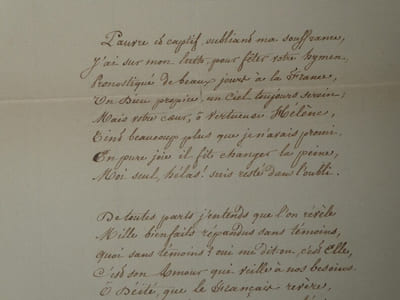 Pauvre et captif, oubliant ma souffrance,
J'ai sur mon luth, pour fêter votre hymen,
Pronostiqué de beaux jours à la France,
Un Dieu propice, un Ciel toujours serein;
Mais votre cœur, ô vertueuse Hélène,
Tient beaucoup plus que je n'avais promi.
En pure joie il fit changer la peine,
Moi seul, hélas! suis resté dans l'oubli.
De toutes parts j'entends que l'on révèle
Mille bienfaits répandus sans témoins,
quoi sans témoins! oui me dit-on, c'est Elle,
C'est son Amour qui veille à nos besoins.
O Déité, que le Français revère,